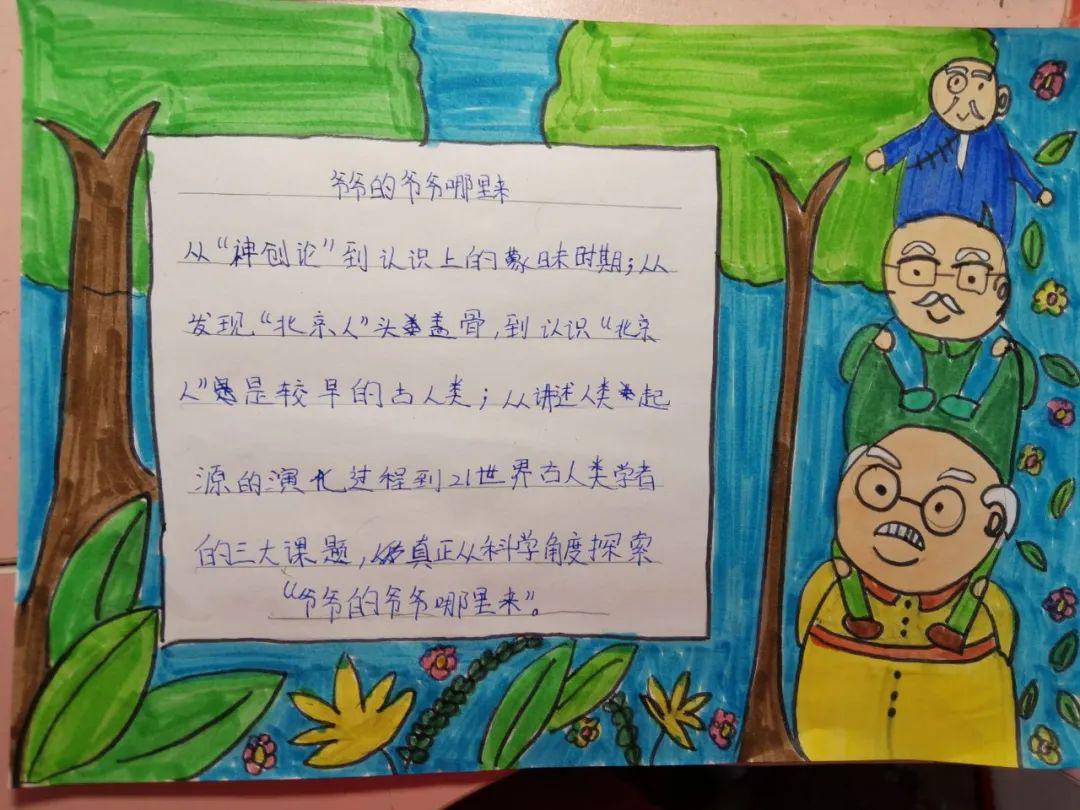 爷爷的爷爷哪里来
从“神创论”到认识上的蒙昧时期；从
发现“北京人”头盖骨，到认识“北京
人”是较早的古人类；从讲述人类起
源的演化过程到21世界古人类学者
的三大课题，真正从科学角度探索
“爷爷的爷爷哪里来”。